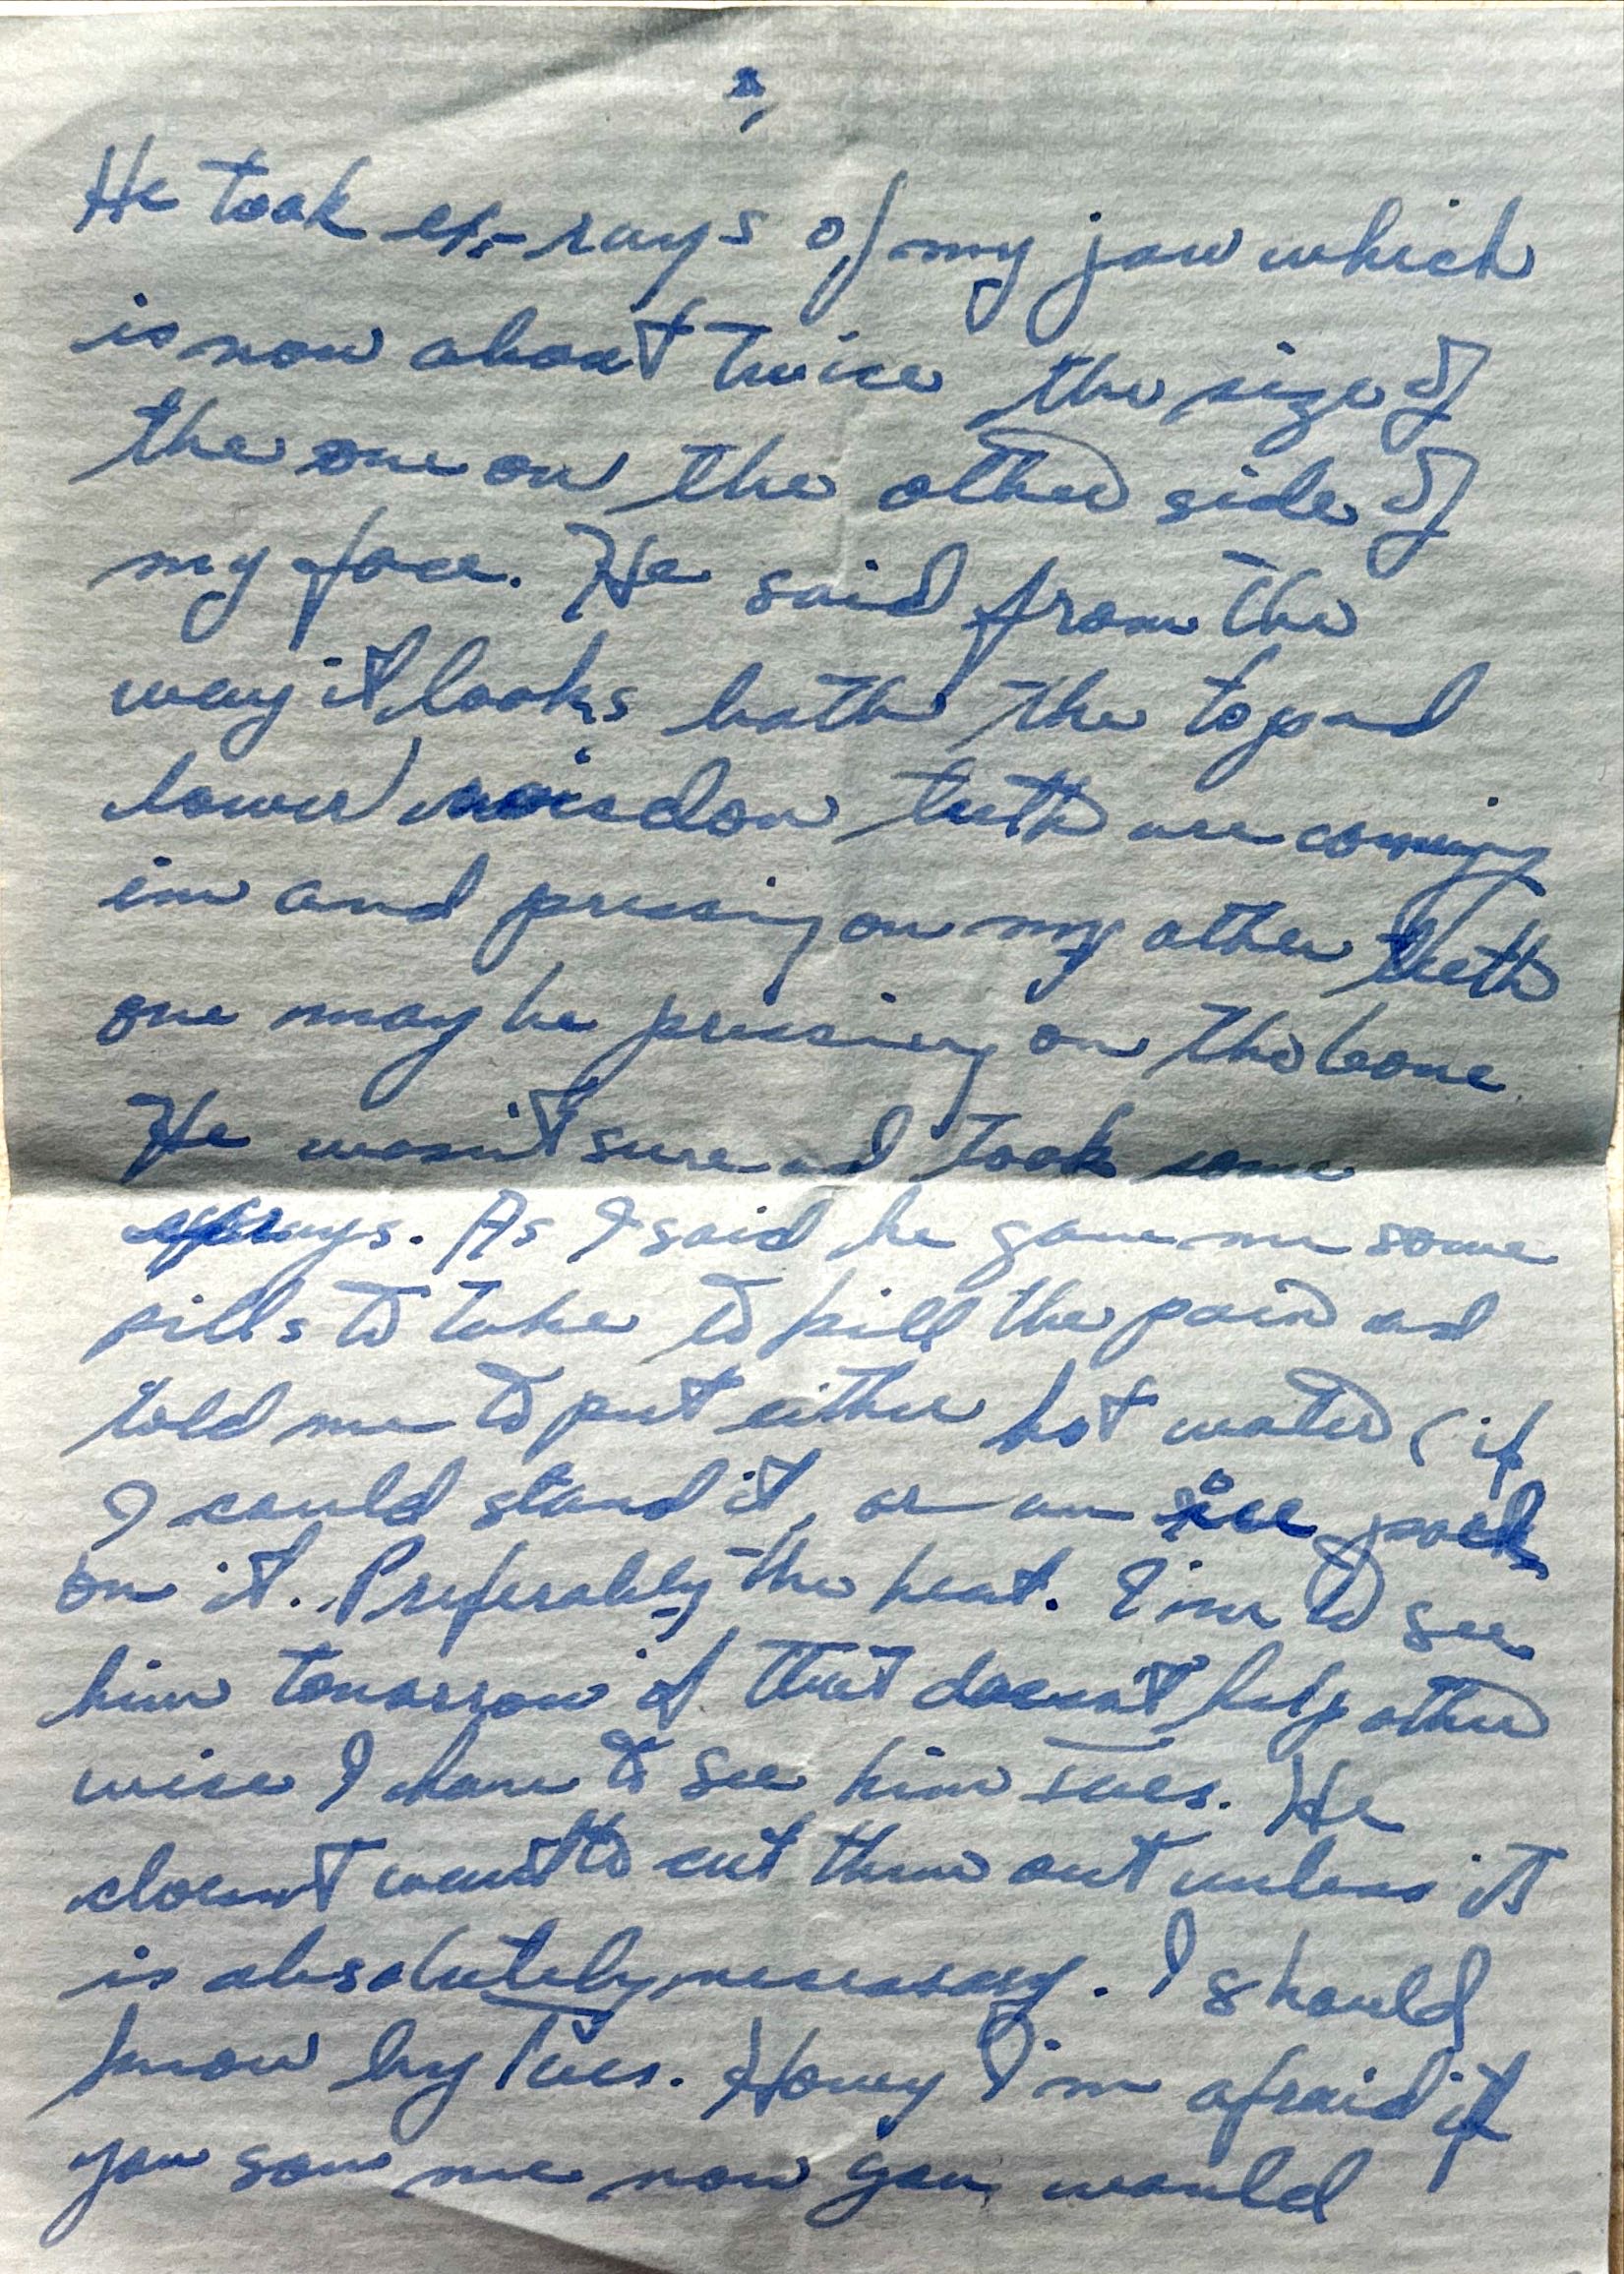 He took exrays of my jaw which
is now about twice the size of
the one on the other side of
my face. He said from the
way it looks both the top and
lower wisdom teeth are coming
in and pressing on my other teeth
one may be pressing on the bone
He wasn't sure and took some
exrays. As I said he gave me some
pills to take to kill the pain and
told me to put either hot water (if
I could stand it, or an ice pack
on it. Preferably the heat. I'm to see
him tomorrow if that doesn't help other
wise I have to see him Tues. He
doesnt want to cut them out unless it
is absolutely necessary. I should
know by Tues. Honey I'm afraid if
you saw me now you would